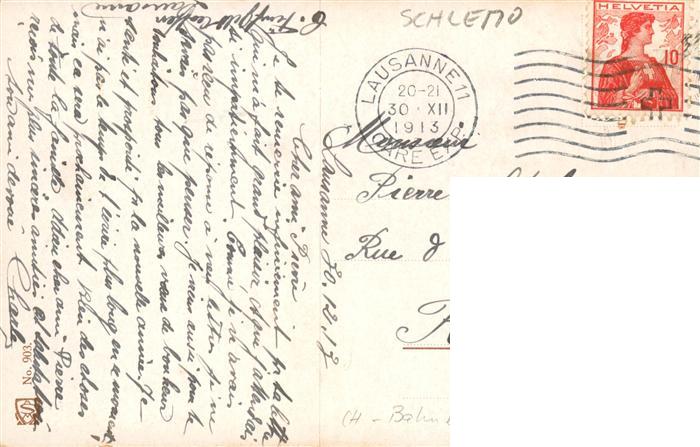 SCHLEMO
HELVETIA
10
LAUSANNE 11
20-21
30. XII
1913
GARE EXP.
Monsieur
Pierre
Rue d
CH - Bahn
Lausanne 30.12.13
Cher ami Pierre
Je te remercie infiniment pr ta lettre
qui m'a fait grand plaisir et que j'attendais
si impatiemment. Comme je n'avais
pas eu de réponse à ma lettre je ne
savais pas que penser. Je viens aussi pour te
souhaiter tous les meilleurs vœux de bonheur
santé et prospérité pr la nouvelle année. Je
n'ai pas le temps de t'écrire plus long en ce moment
mais ce sera prochainement. Bien des choses
à toute la famille. Mon cher ami Pierre
reçois mes plus sincères amitiés et
Charly
Lausanne
No. 903.